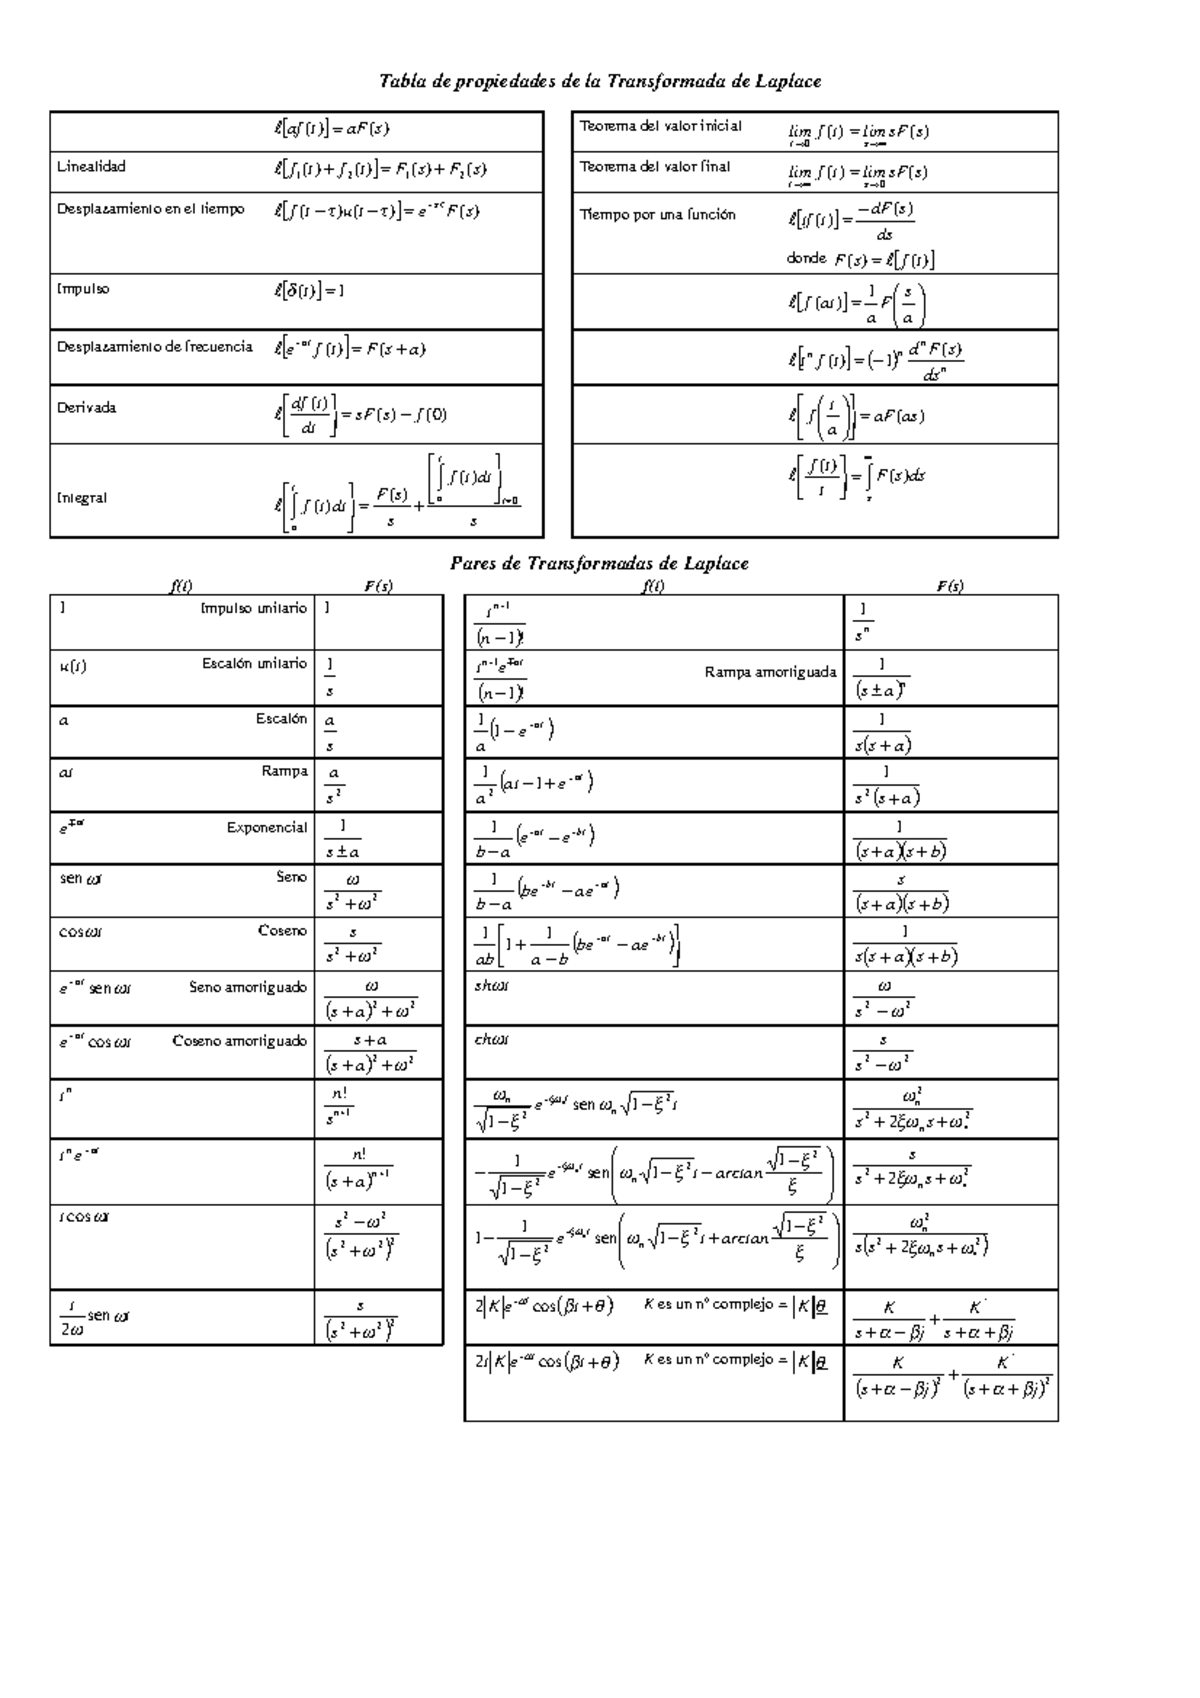 Tabla de propiedades de la Transformada de Laplace
ℓ[af(t)] = aF(s)
Linealidad ℓ[f₁(t) + f₂(t)] = F₁(s) + F₂(s)
Desplazamiento en el tiempo ℓ[f(t − τ)u(t − τ)] = e^(-sτ) F(s)
Impulso ℓ[δ(t)] = 1
Desplazamiento de frecuencia ℓ[e^(-at) f(t)] = F(s + a)
Derivada ℓ[df(t)/dt] = sF(s) − f(0)
Integral ℓ[∫₀ᵗ f(t)dt] = F(s)/s + [∫₀ᵗ f(t)dt]_(t=0)/s
Teorema del valor inicial lim_(t→0) f(t) = lim_(s→∞) sF(s)
Teorema del valor final lim_(t→∞) f(t) = lim_(s→0) sF(s)
Tiempo por una función ℓ[tf(t)] = −dF(s)/ds
donde F(s) = ℓ[f(t)]
ℓ[f(at)] = 1/a F(s/a)
ℓ[tⁿ f(t)] = (−1)ⁿ dⁿF(s)/dsⁿ
ℓ[f(t/a)] = aF(as)
ℓ[f(t)/t] = ∫_s^∞ F(s)ds
Pares de Transformadas de Laplace
f(t) F(s)
1 Impulso unitario 1
u(t) Escalón unitario 1/s
a Escalón a/s
at Rampa a/s²
e^(∓at) Exponencial 1/(s ± a)
sen ωt Seno ω/(s² + ω²)
cos ωt Coseno s/(s² + ω²)
e^(-at) sen ωt Seno amortiguado ω/((s + a)² + ω²)
e^(-at) cos ωt Coseno amortiguado (s + a)/((s + a)² + ω²)
tⁿ n!/s^(n+1)
tⁿe^(-at) n!/(s + a)^(n+1)
t cos ωt (s² − ω²)/(s² + ω²)²
t/2ω sen ωt s/(s² + ω²)²
f(t) F(s)
t^(n-1)/(n − 1)! 1/sⁿ
t^(n-1)e^(∓at)/(n − 1)! Rampa amortiguada 1/(s ± a)ⁿ
1/a (1 − e^(-at)) 1/(s(s + a))
1/a² (at − 1 + e^(-at)) 1/(s²(s + a))
1/(b − a) (e^(-at) − e^(-bt)) 1/((s + a)(s + b))
1/(b − a) (be^(-bt) − ae^(-at)) s/((s + a)(s + b))
1/ab [1 + 1/(a − b) (be^(-at) − ae^(-bt))] 1/(s(s + a)(s + b))
shωt ω/(s² − ω²)
chωt s/(s² − ω²)
ωₙ/√(1 − ξ²) e^(-ξωₙt) sen ωₙ√(1 − ξ²)t ωₙ²/(s² + 2ξωₙs + ωₙ²)
−1/√(1 − ξ²) e^(-ξωₙt) sen(ωₙ√(1 − ξ²)t − arctan √(1 − ξ²)/ξ) s/(s² + 2ξωₙs + ωₙ²)
1 − 1/√(1 − ξ²) e^(-ξωₙt) sen(ωₙ√(1 − ξ²)t + arctan √(1 − ξ²)/ξ) ωₙ²/(s(s² + 2ξωₙs + ωₙ²))
2|K|e^(-αt) cos(βt + θ) K es un nº complejo = |K|θ K/(s + α − βj) + K*/(s + α + βj)
2t|K|e^(-αt) cos(βt + θ) K es un nº complejo = |K|θ K/(s + α − βj)² + K*/(s + α + βj)²